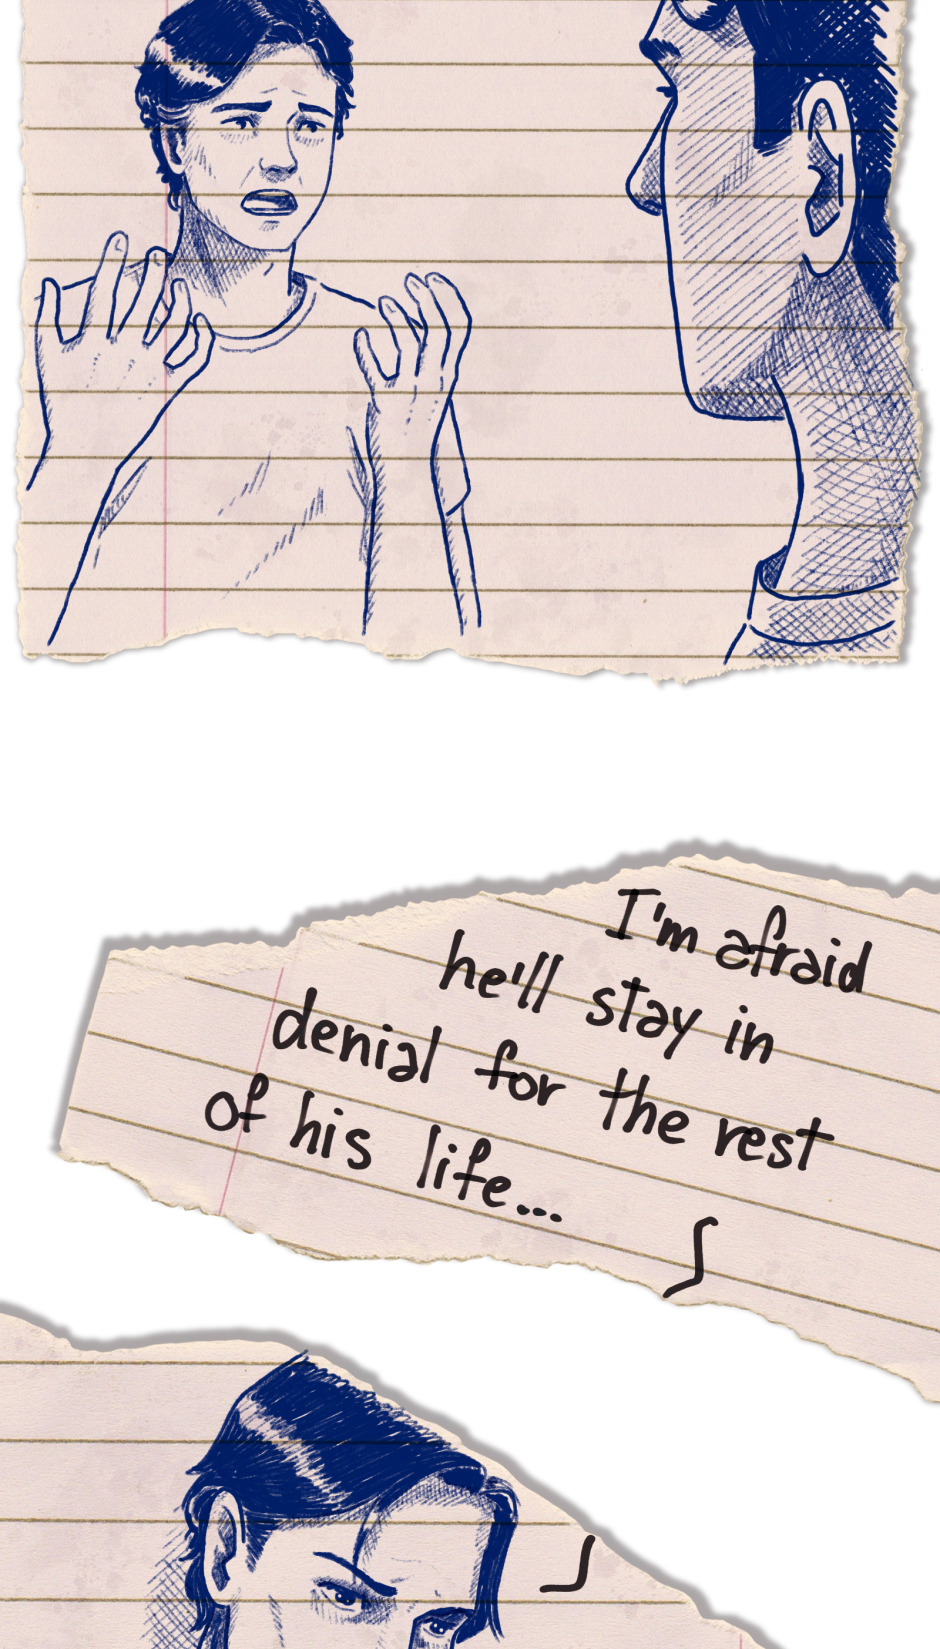 I'm afraid
he'll stay in
denial for the rest
of his life...